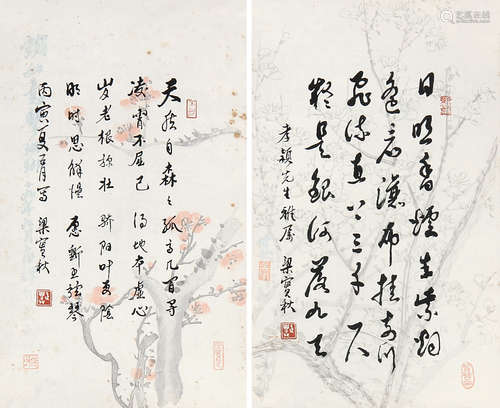 日照香爐生紫烟
遙看瀑布挂前川
飛流直下三千尺
疑是銀河落九天
先生雅屬 梁實秋
天然自森々孤高几百尋
凌霄不屈己 得地本虛心
岁老根弥壮 骄阳叶更陰
明时思解慍 愿斫五弦琴
丙寅夏 月写 梁實秋